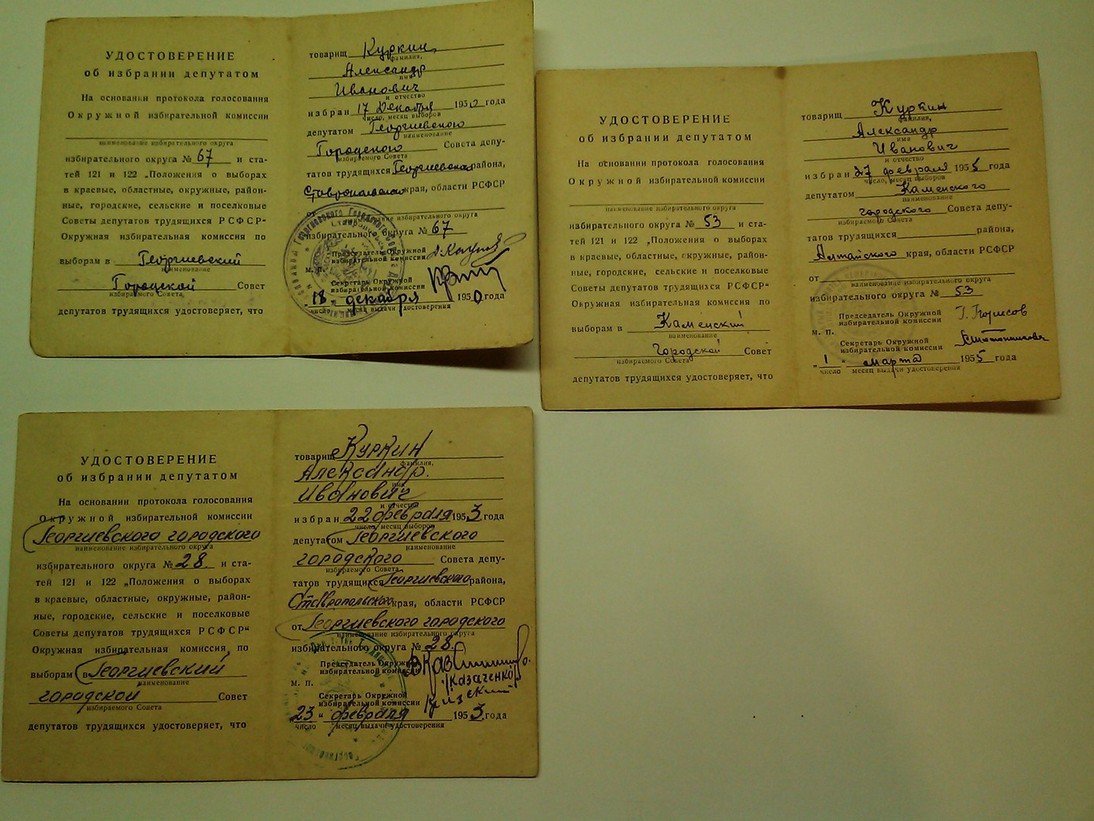 УДОСТОВЕРЕНИЕ
об избрании депутатом
На основании протокола голосования
Окружной избирательной комиссии
наименование избирательного округа
избирательного округа № 67 и ста-
тей 121 и 122 „Положения о выборах
в краевые, областные, окружные, район-
ные, городские, сельские и поселковые
Советы депутатов трудящихся РСФСР"
Окружная избирательная комиссия по
выборам в Георгиевский
наименование
Городской Совет
избираемого Совета
депутатов трудящихся удостоверяет, что
товарищ Куркин
фамилия,
Александр
имя
Иванович
и отчество
избран 17 Декабря 1950 года
число, месяц выборов
депутатом Георгиевского
наименование
Городского Совета депу-
избираемого Совета
татов трудящихся Георгиевского района,
Ставропольского края, области РСФСР
от
наименование избирательного округа
избирательного округа № 67
Председатель Окружной
избирательной комиссии
М. П.
Секретарь Окружной
избирательной комиссии
„18" декабря 1950 года
число месяц выдачи удостоверения
УДОСТОВЕРЕНИЕ
об избрании депутатом
На основании протокола голосования
Окружной избирательной комиссии
наименование избирательного округа
избирательного округа № 53 и ста-
тей 121 и 122 „Положения о выборах
в краевые, областные, окружные, район-
ные, городские, сельские и поселковые
Советы депутатов трудящихся РСФСР"
Окружная избирательная комиссия по
выборам в Каменский
наименование
Городской Совет
избираемого Совета
депутатов трудящихся удостоверяет, что
товарищ Куркин
фамилия,
Александр
имя
Иванович
и отчество
избран 27 февраля 1955 года
число, месяц выборов
депутатом Каменского
наименование
городского Совета депу-
избираемого Совета
татов трудящихся района,
Алтайского края, области РСФСР
от
наименование избирательного округа
избирательного округа № 53
Председатель Окружной
избирательной комиссии Г. Борисов
М. П.
Секретарь Окружной
избирательной комиссии
„1" марта 1955 года
число месяц выдачи удостоверения
УДОСТОВЕРЕНИЕ
об избрании депутатом
На основании протокола голосования
Окружной избирательной комиссии
Георгиевского городского
наименование избирательного округа
избирательного округа № 28 и ста-
тей 121 и 122 „Положения о выборах
в краевые, областные, окружные, район-
ные, городские, сельские и поселковые
Советы депутатов трудящихся РСФСР"
Окружная избирательная комиссия по
выборам в Георгиевский
наименование
городской Совет
избираемого Совета
депутатов трудящихся удостоверяет, что
товарищ Куркин
фамилия,
Александр
имя
Иванович
и отчество
избран 22 февраля 1953 года
число, месяц выборов
депутатом Георгиевского
наименование
городского Совета депу-
татов трудящихся Георгиевского района,
Ставропольского края, области РСФСР
от Георгиевского городского
наименование избирательного округа
избирательного округа № 28
Председатель Окружной
избирательной комиссии
Казаченко
М. П.
Секретарь Окружной
избирательной комиссии
23 " февраля 1953 года
число месяц выдачи удостоверения